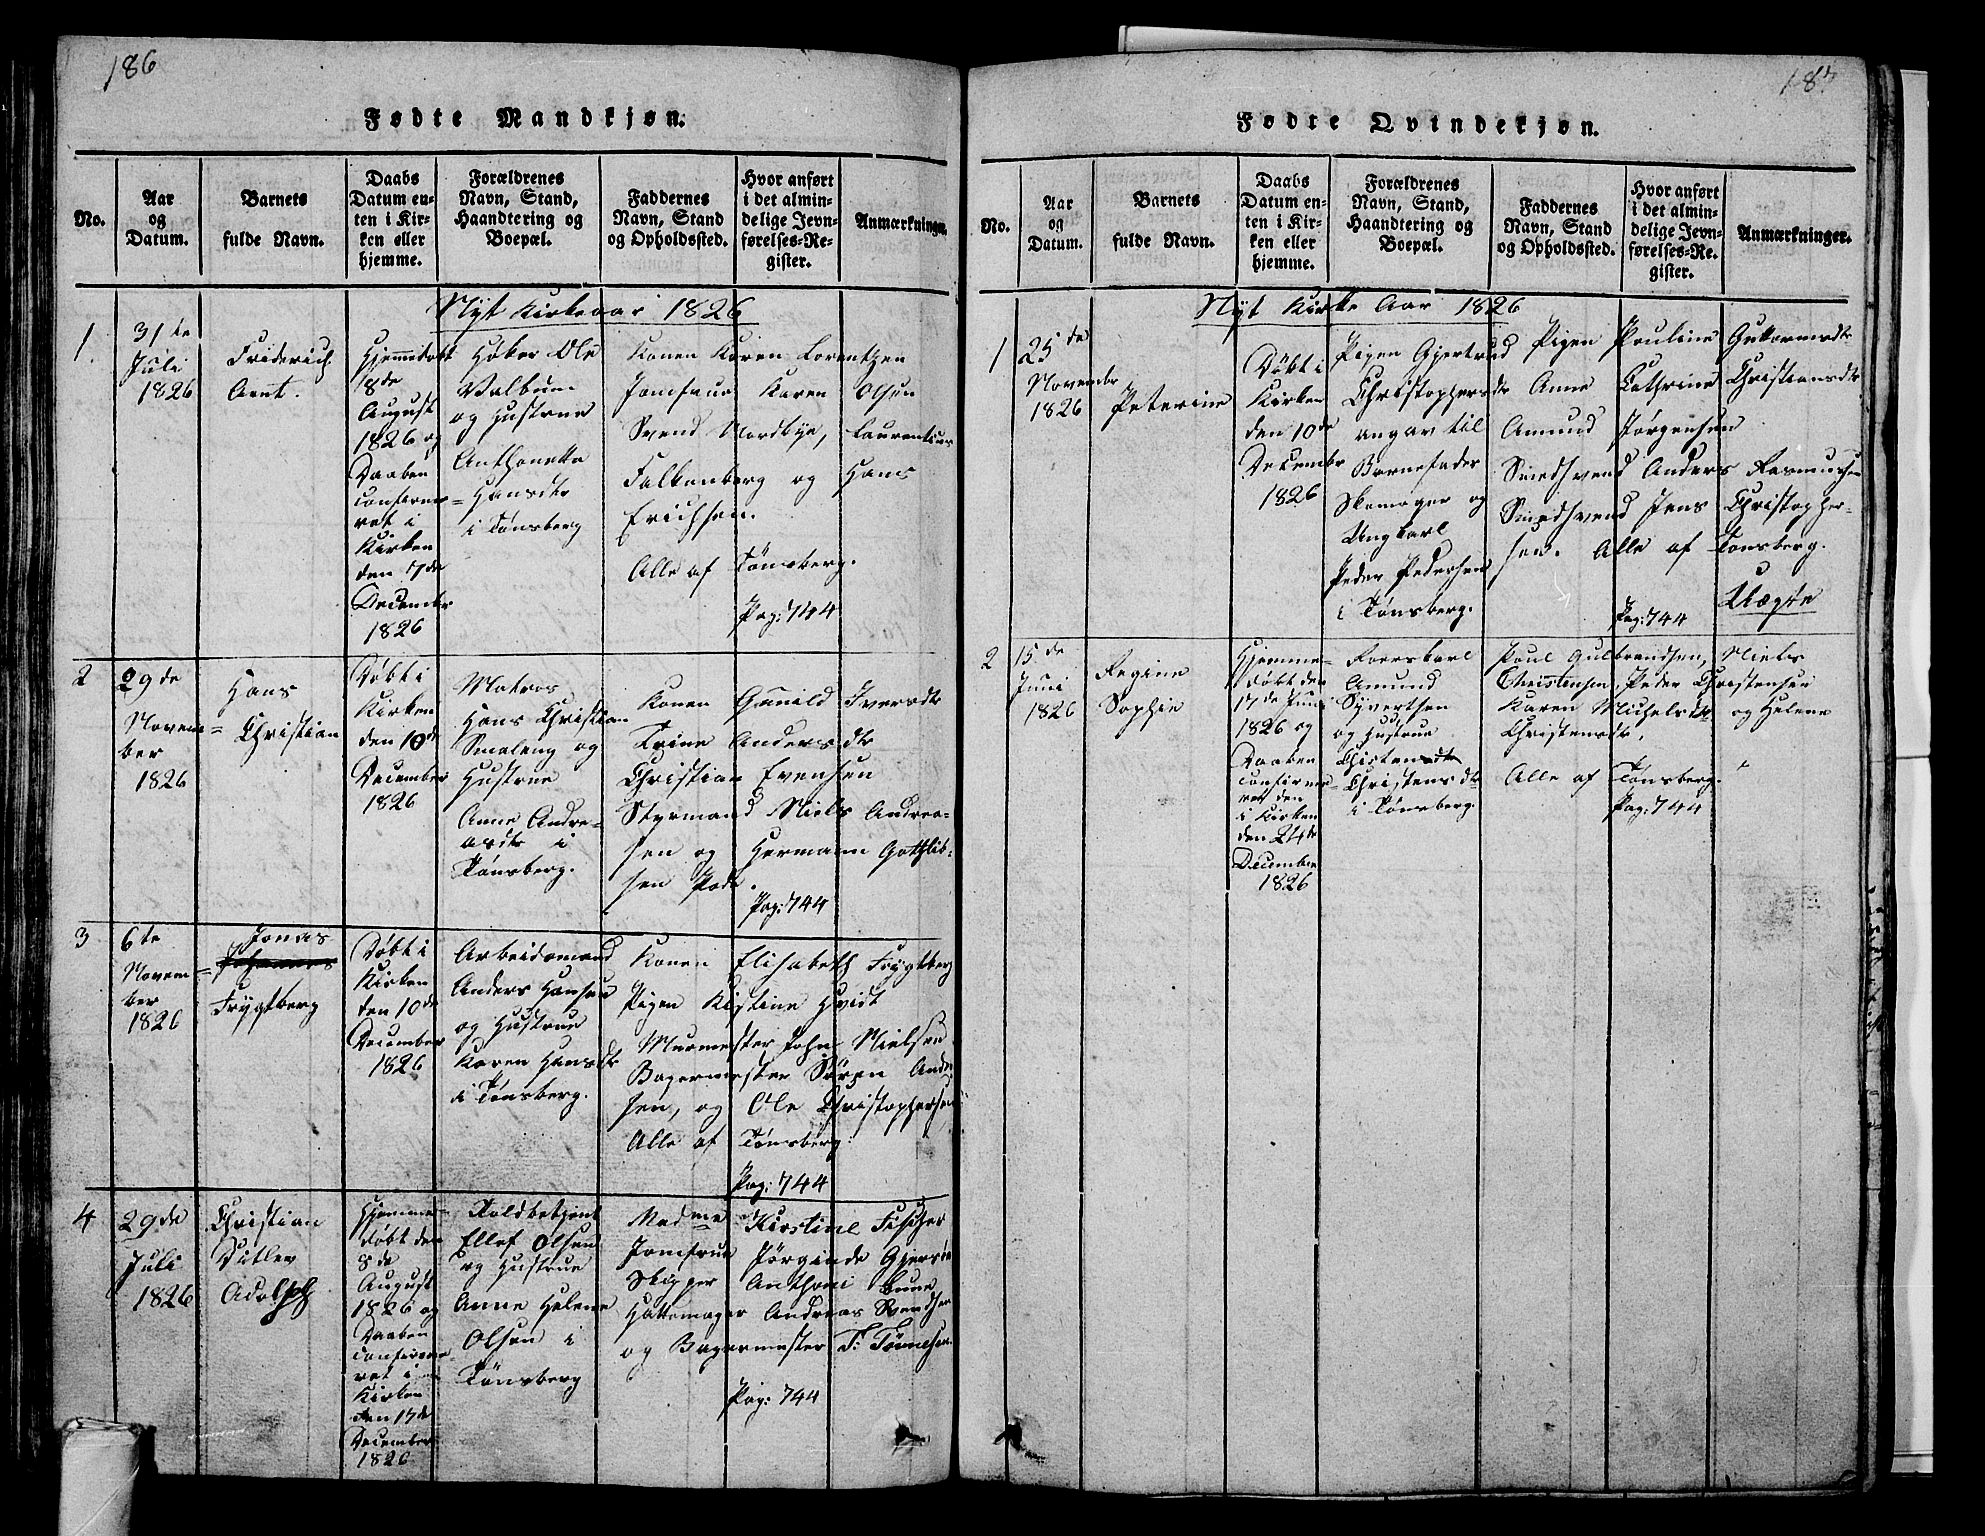 186
Fødte Mandkjøn.
No.
Aar
og
Datum.
Barnets
fulde Navn.
Daabs
Datum en-
ten i Kir-
ken eller
hjemme.
Forældrenes
Navn, Stand,
Haandtering og
Boepæl.
Faddernes
Navn, Stand
og Opholdssted.
Hvor anført
i det almin-
delige Jevn-
førelses-Re-
gister.
Anmærkninger.
Nyt Kirkeaar 1826
1.
31te
Juli
1826
Friderich
Arnt.
Hjemmedøbt
8de
August
1826 og
Daaben
confirme-
ret i
Kirken
den 7de
December
1826
Høker Ole
Valbum
og Hustrue
Anthonette
Hansdtr
i Tønsberg
Konen Karen Lorentzen
Jomfrue Karen Olsen
Svend Nordbye, Laurentius
Falkenberg og Hans
Erichsen.
Alle af Tønsberg.
Pag: 744
2
29de
Novem=
ber
1826
Hans
Christian
Døbt i
Kirken
den 10de
December
1826
Matros
Hans Christian
Smaleng og
Hustrue
Anne Andre-
asdtr i
Tønsberg.
Konen Gunild Iversdtr
Trine Andersdtr
Christian Evensen
Styrmand Niels Andrea-
sen og Hermann Gottlieb-
sen Pode.
Pag: 744
3
6te
Novem=
ber
1826
Jonas
Johannes
Frygtberg
Døbt i
Kirken
den 10de
December
1826
Arbeidsmand
Anders Hansen
og Hustrue
Karen Hansdtr
i Tønsberg.
Konen Elisabeth Frygtberg
Pigen Kistine Hvidt
Murmester John Nielsen
Bagermester Søren Ander
sen, og Ole Christophersen
Alle af Tønsberg.
Pag: 744
4
29de
Juli
1826
Christian
Ditlev
Adolph
Hjemme=
døbt den
8de
August
1826 og
Daaben
confirme-
ret i
Kirken
den 17de
December
1826
Toldbetjent
Ellef Olsen
og Hustrue
Anne Helene
Olsen i
Tønsberg
Madme Kirstine Fischer
Jomfrue Jørginde Gjersøe
Skipper Anthoni Bune
Hattemager Andreas Svendsen
og Bagermester T: Tønnesen.
Pag: 744
187
Fødte Qvindekjøn.
No.
Aar
og
Datum.
Barnets
fulde Navn.
Daabs
Datum en-
ten i Kir-
ken eller
hjemme.
Forældrenes
Navn, Stand,
Haandtering og
Boepæl.
Faddernes
Navn, Stand
og Opholdssted.
Hvor anført
i det almin-
delige Jevn-
førelses-Re-
gister.
Anmærkninger.
Nyt Kirke Aar 1826
1
25de
Novembr
1826
Peterine
Døbt i
Kirken
den 10de
Decembr
1826
Pigen Gjertrud
Christophersdtr
angav til
Barnefader
Skomager og
Ungkarl
Peder Pedersen
i Tønsberg.
Pigen Pouline Guttormsdtr
Anne Cathrine Christiansdtr
Amund Jørgensen
Smedsvend Anders Rasmussen
Smedsvend Jens Christopher-
sen. Alle af Tønsberg.
Pag: 744
Uægte
2
15de
Juni
1826
Regine
Sophie
Hjemme=
døbt den
17de Juni
1826 og
Daaben
confirme=
ret den
i Kirken
den 24de
December
1826
Roerskarl
Amund
Syvertsen
og Hustrue
Christensdtr
i Tønsberg.
Poul Gulbrandsen, Niels
Christensen, Peder Christensen
Karen Michelsdtr og Helene
Christensdtr,
Alle af Tønsberg.
Pag: 744